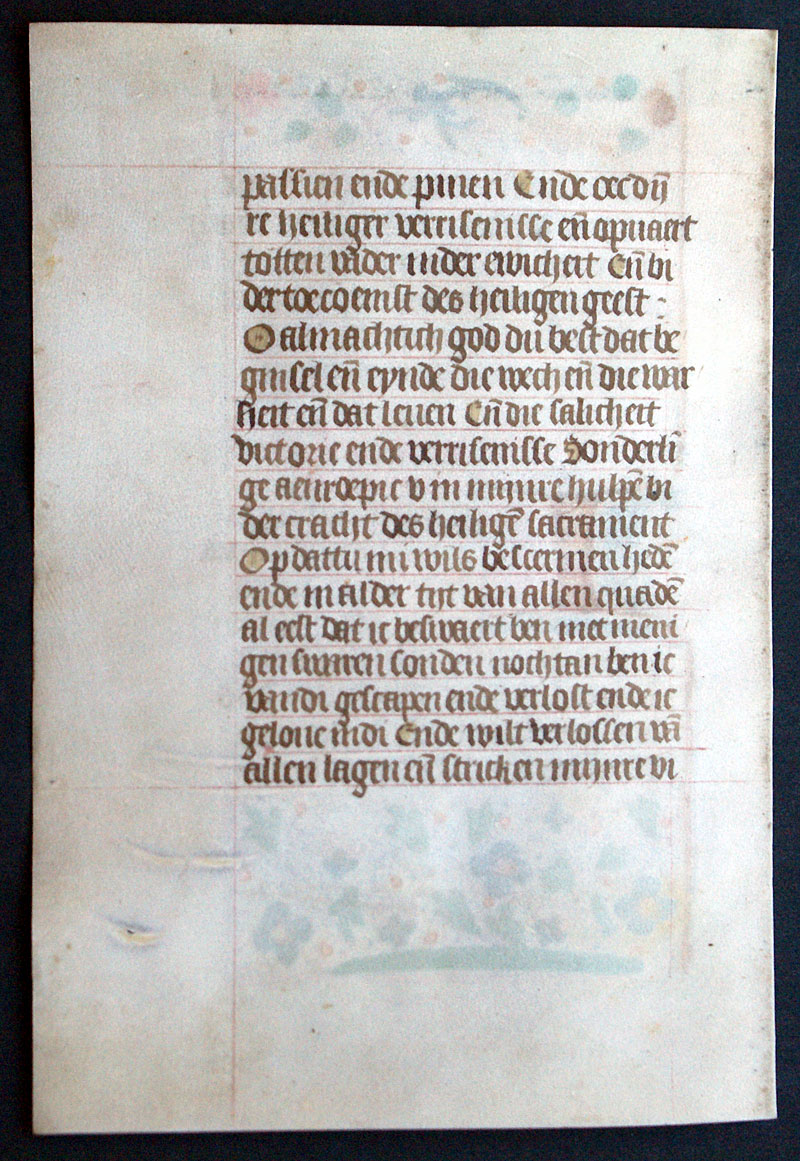 passien ende pinen Ende oec dijn̄
re heiliger verrisenisse en̄ opuaert
totten vader inder ewicheit En̄ bi
der toecoemst des heiligen geest :
O almachtich god du best dat be
ginsel en̄ eynde die wech en̄ die war
heit en̄ dat leuen En̄ die salicheit
victorie ende verrisenisse Sonderli
ge aenroepic v in mijnre hulpē bi
der cracht des heiligē sacrament
Op dattu mi wils bescermen hedē
ende in alder tijt van allen quadē
al eest dat ic beswaert ben met meni
gen swaren sonden nochtan ben ic
van di gescapen ende verlost ende ic
geloue in di Ende wilt verlossen vā
allen lagen en̄ stricken mijnre vi